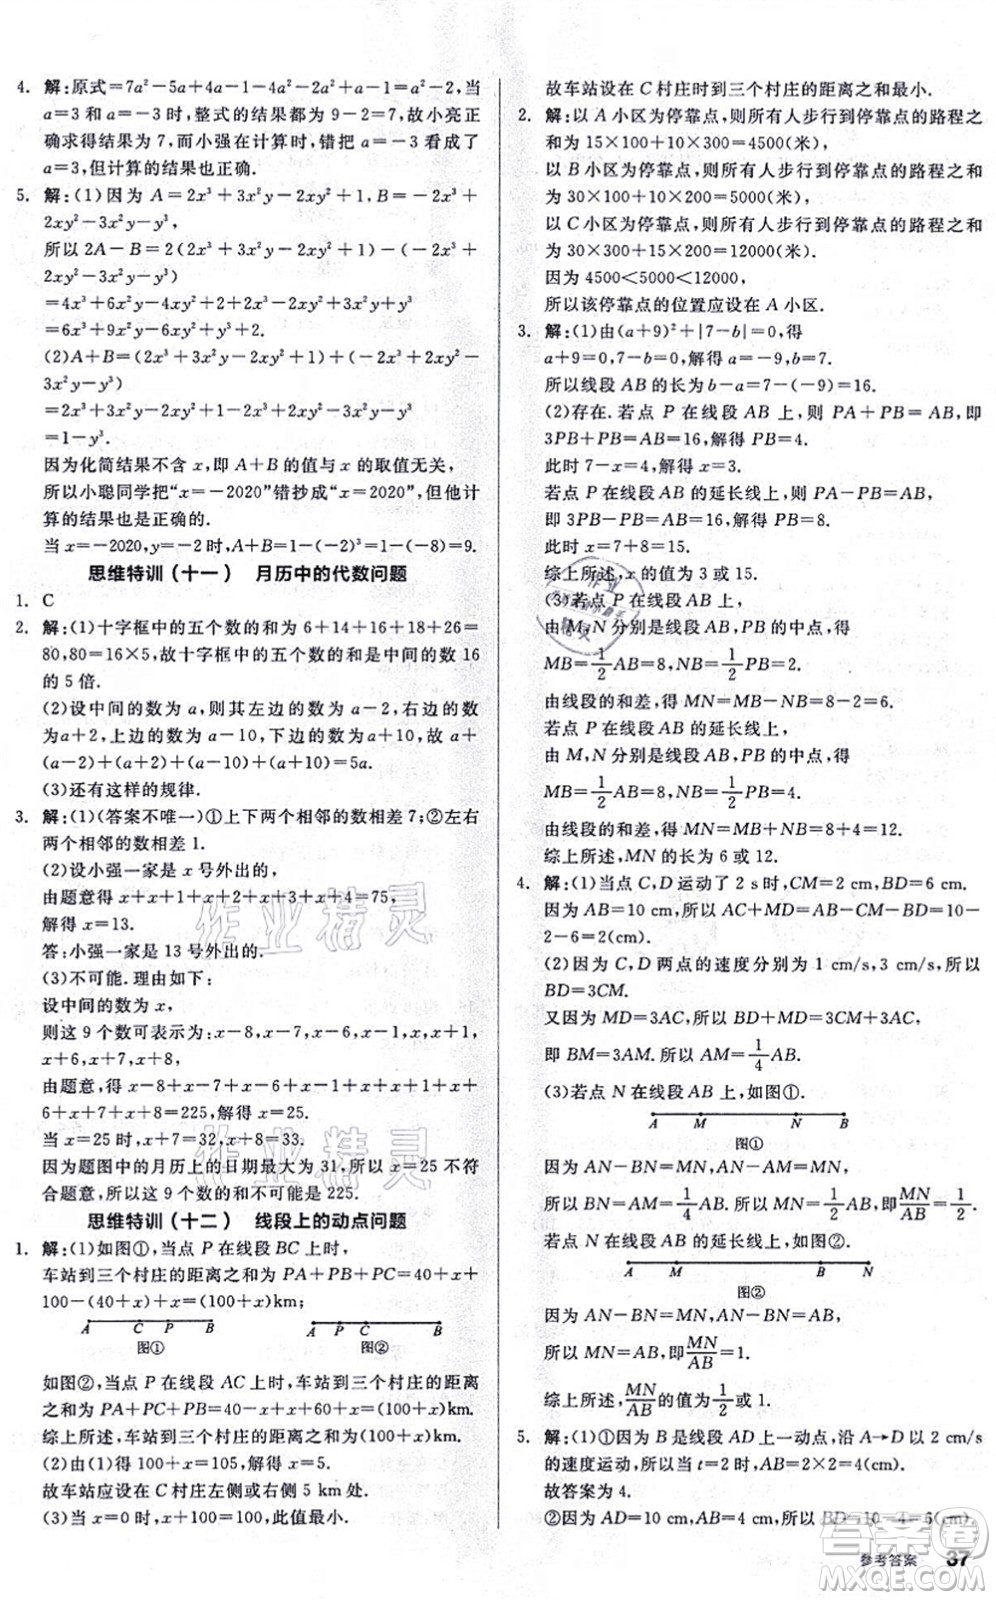 4. 解:原式=7a²-5a+4a-1-4a²-2a²+a=a²-2,当
a=3和a=-3时,整式的结果都为9-2=7,故小亮正
确求得结果为7,而小强在计算时,错把a=-3看成了
a=3,但计算的结果也正确.
5. 解:(1)因为A=2x³+3x²y-2xy²+1,B=-x³+
2xy²-3x²y-y³,
所以2A-B=2(2x³+3x²y-2xy²+1)-(-x³+
2xy²-3x²y-y³)
=4x³+6x²y-4xy²+2+x³-2xy²+3x²y+y³
=6x³+9x²y-6xy²+y³+2.
(2)A+B=(2x³+3x²y-2xy²+1)+(-x³+2xy²-
3x²y-y³)
=2x³+3x²y-2xy²+1-x³+2xy²-3x²y-y³
=1-y³.
因为化简结果不含x,即A+B的值与x的取值无关,
所以小聪同学把“x=-2020”错抄成“x=2020”,但他计
算的结果也是正确的.
当x=-2020,y=-2时,A+B=1-(-2)³=1-(-8)=9.
思维特训(十一) 月历中的代数问题
1. C
2. 解:(1)十字框中的五个数的和为6+14+16+18+26=
80,80=16×5,故十字框中的五个数的和是中间的数16
的5倍.
(2)设中间的数为a,则其左边的数为a-2,右边的数
为a+2,上边的数为a-10,下边的数为a+10,故a+
(a-2)+(a+2)+(a-10)+(a+10)=5a.
(3)还有这样的规律.
3. 解:(1)(答案不唯一)①上下两个相邻的数相差7;②左右
两个相邻的数相差1.
(2)设小强一家是x号外出的.
由题意得x+x+1+x+2+x+3+x+4=75,
解得x=13.
答:小强一家是13号外出的.
(3)不可能.理由如下:
设中间的数为x,
则这9个数可表示为:x-8,x-7,x-6,x-1,x,x+1,
x+6,x+7,x+8,
由题意,得x-8+x-7+x-6+x-1+x+x+1+x+
6+x+7+x+8=225,解得x=25.
当x=25时,x+7=32,x+8=33.
因为题图中的月历上的日期最大为31,所以x=25不符
合题意,所以这9个数的和不可能是225.
思维特训(十二) 线段上的动点问题
1. 解:(1)如图①,当点P在线段BC上时,
车站到三个村庄的距离之和为PA+PB+PC=40+x+
100-(40+x)+x=(100+x)km;
A C P B A P C B
图① 图②
如图②,当点P在线段AC上时,车站到三个村庄的距离
之和为PA+PC+PB=40-x+60+x+x=(100+x)km.
综上所述,车站到三个村庄的距离之和为(100+x)km.
(2)由(1)得100+x=105,解得x=5,
故车站应设在C村庄左侧或右侧5 km处.
(3)当x=0时,100+x=100,
故车站设在C村庄时到三个村庄的距离之和最小.
2. 解:以A小区为停靠点,则所有人步行到停靠点的路程之
和为15×100+10×300=4500(米),
以B小区为停靠点,则所有人步行到停靠点的路程之
和为30×100+10×200=5000(米),
以C小区为停靠点,则所有人步行到停靠点的路程之
和为30×300+15×200=12000(米).
因为4500<5000<12000,
所以该停靠点的位置应设在A小区.
3. 解:(1)由(a+9)²+|7-b|=0,得
a+9=0,7-b=0,解得a=-9,b=7.
所以线段AB的长为b-a=7-(-9)=16.
(2)存在.若点P在线段AB上,则PA+PB=AB,即
3PB+PB=AB=16,解得PB=4.
此时7-x=4,解得x=3.
若点P在线段AB的延长线上,则PA-PB=AB,
即3PB-PB=AB=16,解得PB=8.
此时x=7+8=15.
综上所述,x的值为3或15.
(3)若点P在线段AB上,
由M,N分别是线段AB,PB的中点,得
MB=1/2AB=8,NB=1/2PB=2.
由线段的和差,得MN=MB-NB=8-2=6.
若点P在线段AB的延长线上,
由M,N分别是线段AB,PB的中点,得
MB=1/2AB=8,NB=1/2PB=4.
由线段的和差,得MN=MB+NB=8+4=12.
综上所述,MN的长为6或12.
4. 解:(1)当点C,D运动了2 s时,CM=2 cm,BD=6 cm.
因为AB=10 cm,所以AC+MD=AB-CM-BD=10-
2-6=2(cm).
(2)因为C,D两点的速度分别为1 cm/s,3 cm/s,所以
BD=3CM.
又因为MD=3AC,所以BD+MD=3CM+3AC,
即BM=3AM.所以AM=1/4AB.
(3)若点N在线段AB上,如图①.
A M N B
图①
因为AN-BN=MN,AN-AM=MN,
所以BN=AM=1/4AB,所以MN=1/2AB,即MN/AB=1/2.
若点N在线段AB的延长线上,如图②.
A M B N
图②
因为AN-BN=MN,AN-BN=AB,
所以MN=AB,即MN/AB=1.
综上所述,MN/AB的值为1/2或1.
5. 解:(1)①因为B是线段AD上一动点,沿A→D以2 cm/s
的速度运动,所以当t=2时,AB=2×2=4(cm).
故答案为4.
②因为AD=10 cm,AB=4 cm,所以BD=10-4=6(cm).
参考答案 37
作业精灵
作业精灵
答案圈
MXQE.COM